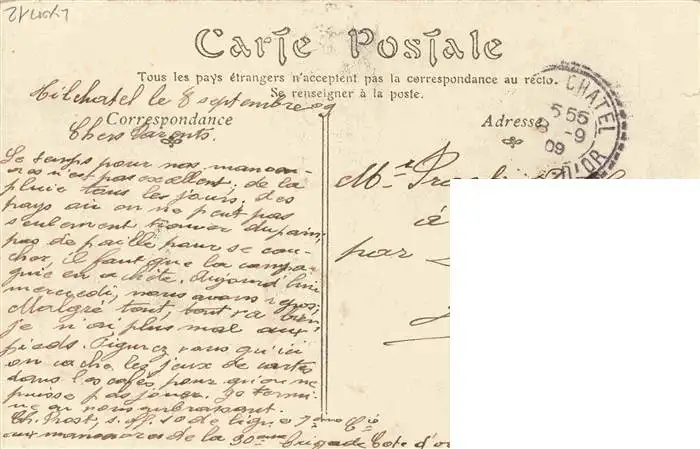 Lyon 21
Carte Postale
Tous les pays étrangers n'acceptent pas la correspondance au recto.
Se renseigner à la poste.
CHATEL
5 55
8 -9
09
D'OR
Tilchatel le 8 septembre 09
Correspondance
Adresse
Chers Parents.
Le temps pour nos manoeu-
vres n'est pas excellent. de la
pluie tous les jours. des
pays où on ne peut pas
seulement trouver du pain,
pas de paille pour se cou-
cher, il faut que la compa-
gnie en achète. Aujourd'hui
mercredi, nous avons repos.
Malgré tout, tout va bien,
je n'ai plus mal aux
pieds. Figurez vous qu'ici
on cache les jeux de cartes
dans les cafés pour qu'on ne
puisse pas jouer. Je termi-
ne en vous embrassant.
Ch. Prost, s. off. 10 de ligne 7ème Cie
aux manoeuvres de la 30ème Brigade Cote d'or
Mr
à
par